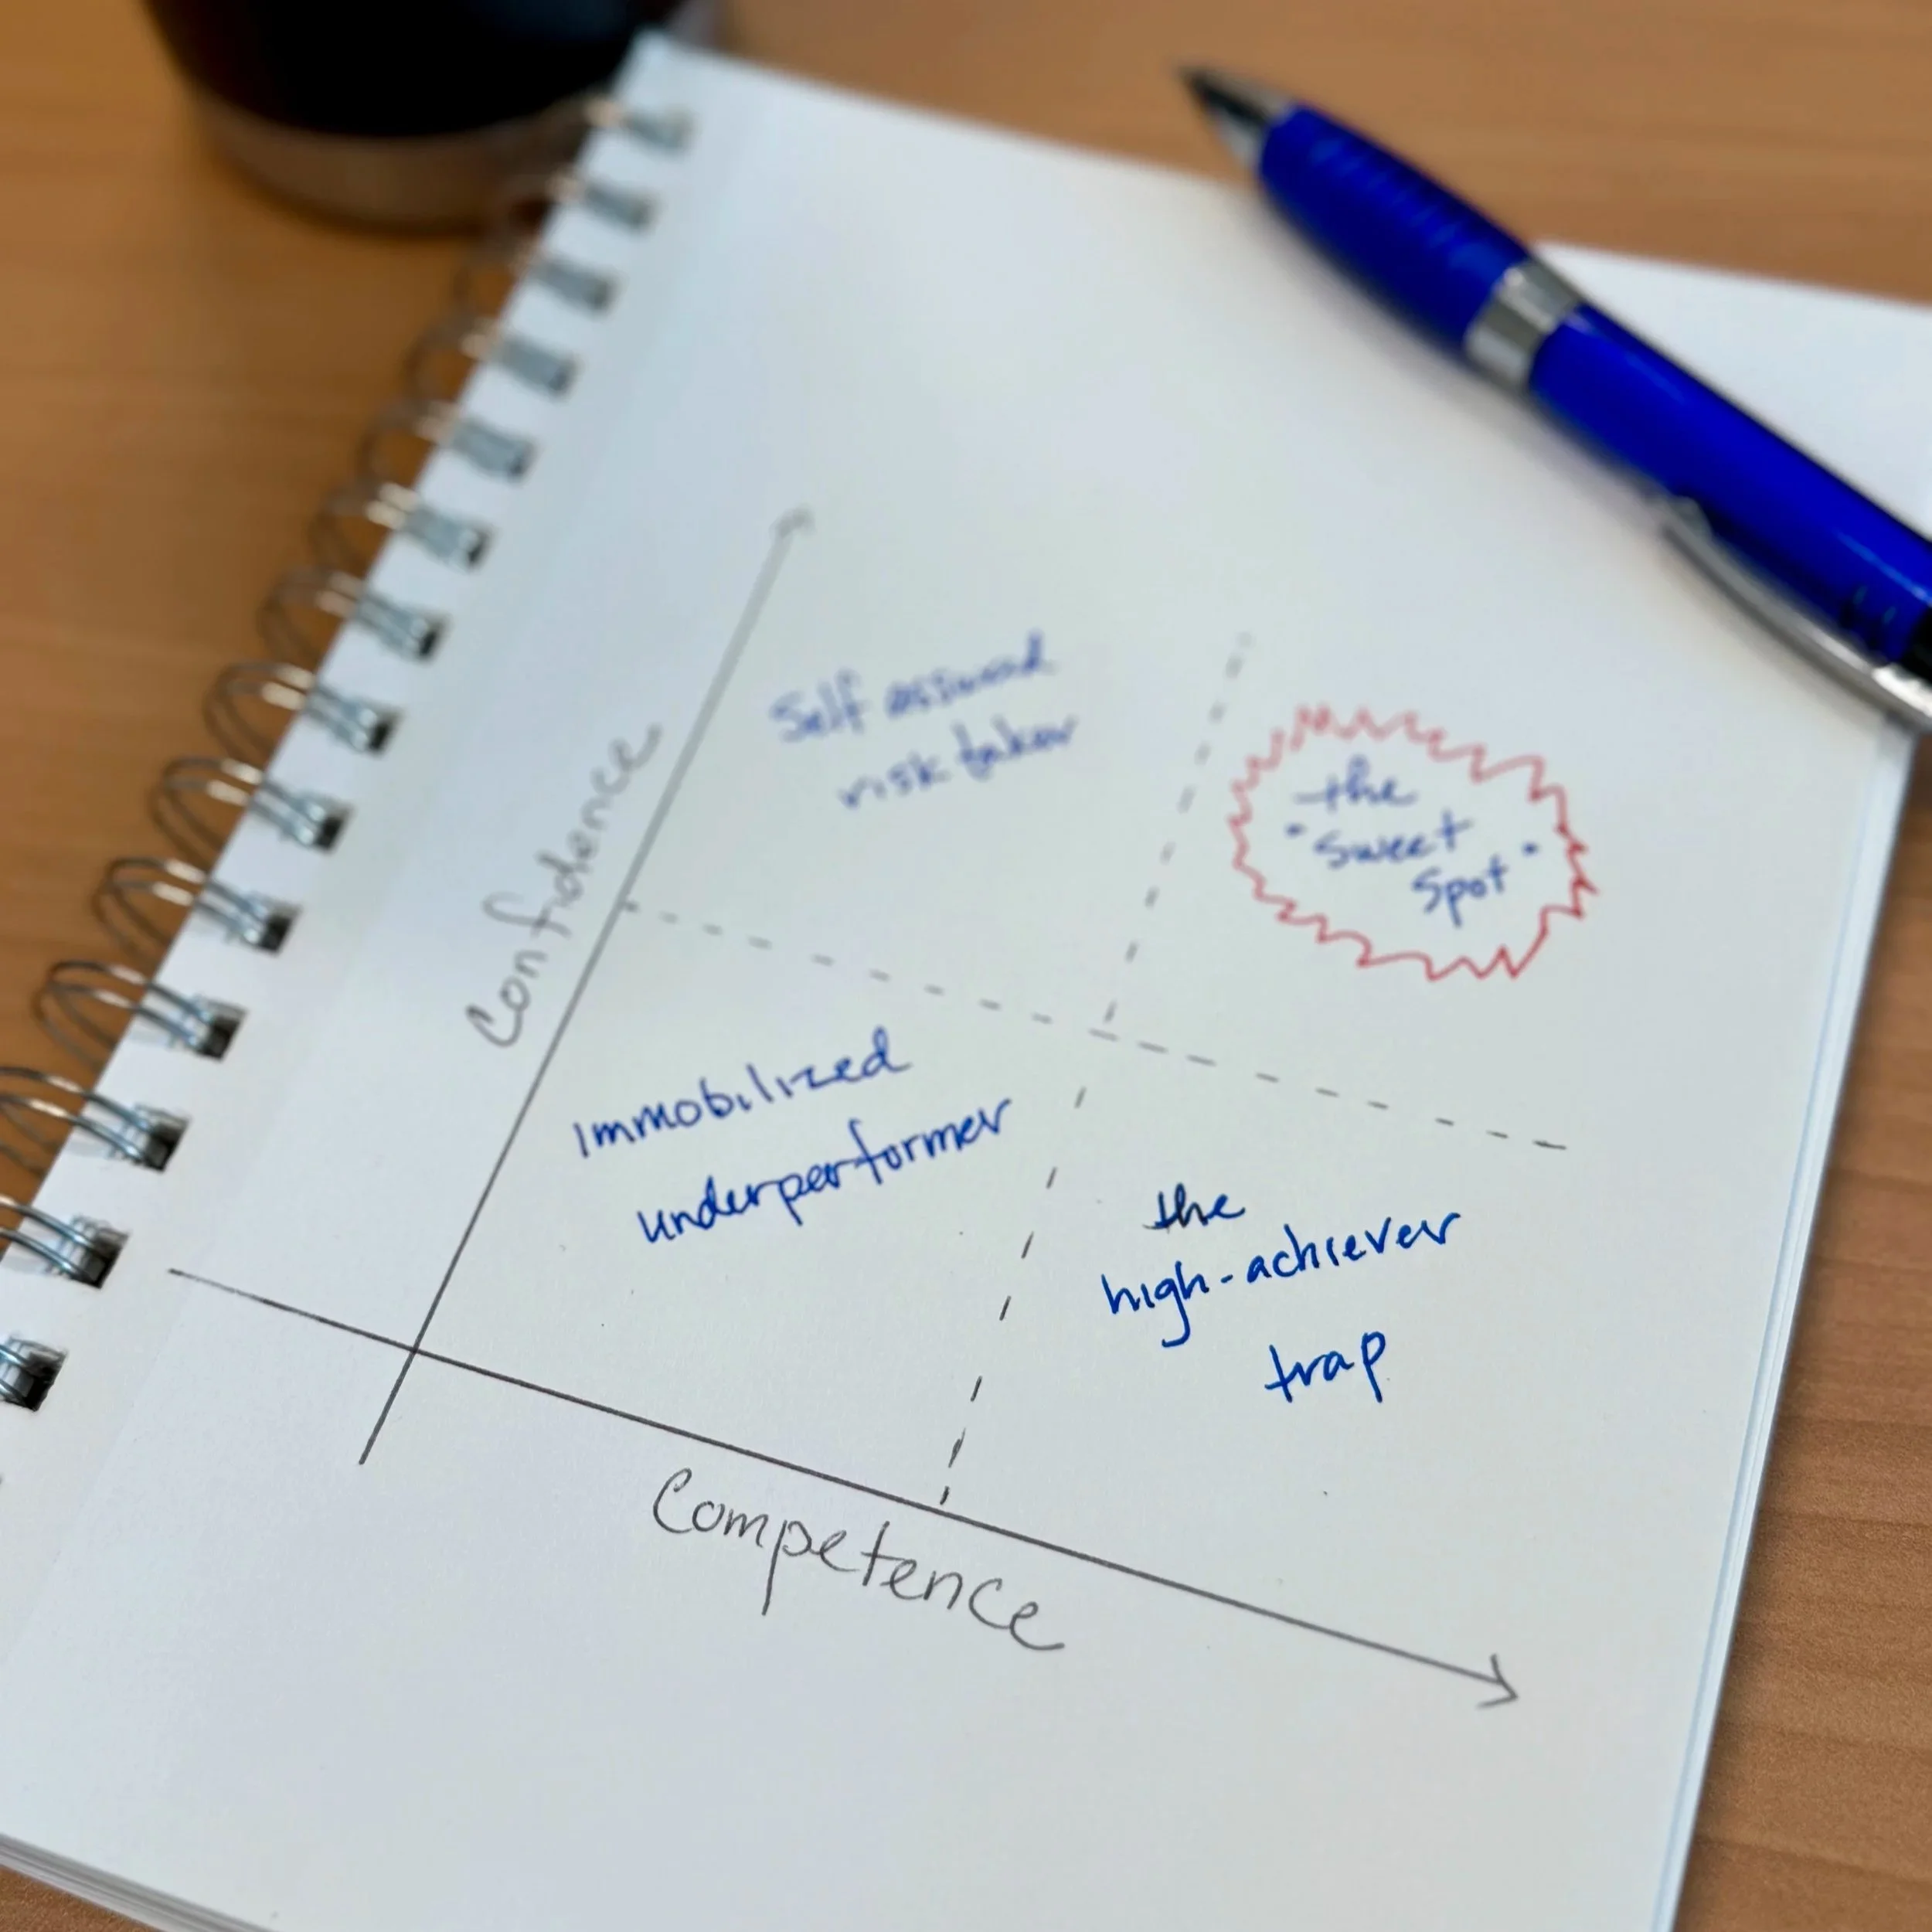 Confidence
Self assured
risk taker
the
"Sweet
Spot"
Immobilized
underperformer
the
high-achiever
trap
Competence